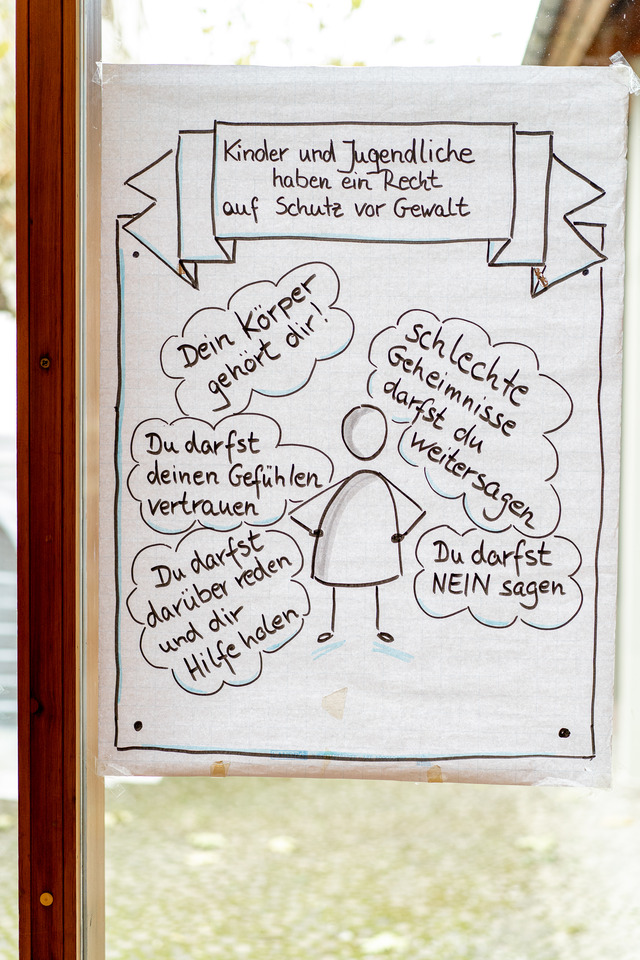 Kinder und Jugendliche
haben ein Recht
auf Schutz vor Gewalt
Dein Körper
gehört dir!
schlechte
Geheimnisse
darfst du
weitersagen
Du darfst
deinen Gefühlen
vertrauen
Du darfst
darüber reden
und dir
Hilfe holen
Du darfst
NEIN sagen